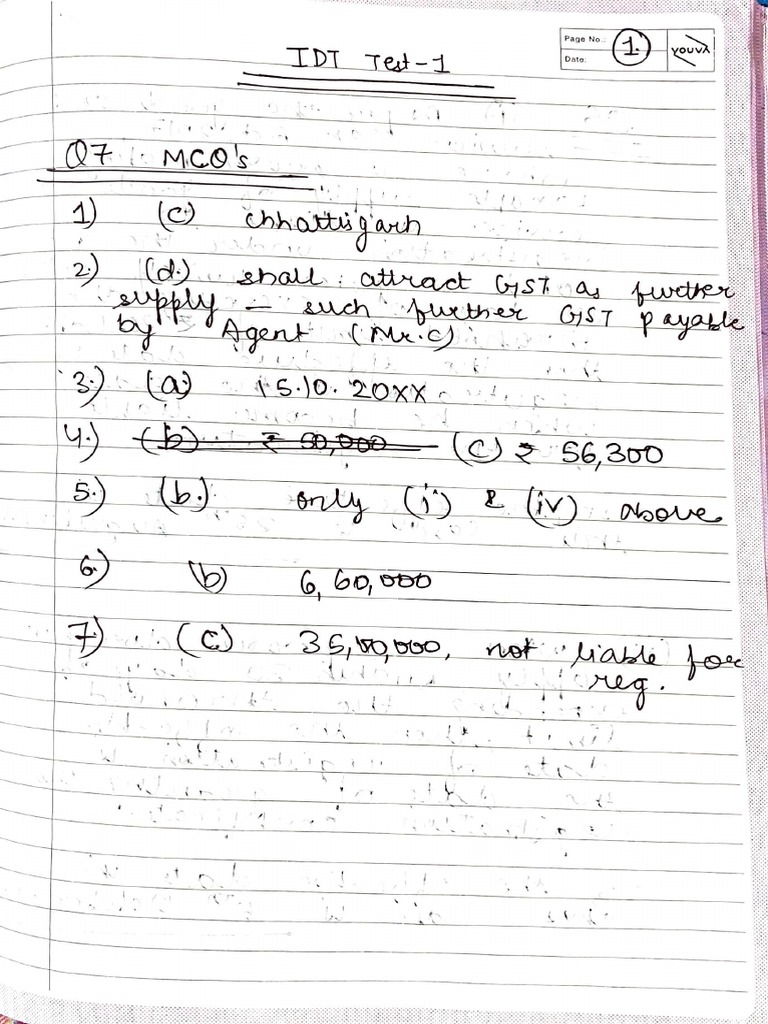 Page No.
Date:
1.
youva
IDT Test-1
Q7 MCQ's
1) (c) Chhattisgarh
2.) (d.) shall attract GST as further
supply – such further GST payable
by Agent (Mr.C)
3.) (a) 15.10.20XX
4.) (b) ₹ 50,000 (c) ₹ 56,300
5.) (b.) only (i) & (iv) above
6.) (b) 6,60,000
7.) (c) 35,00,000, not liable for
reg.